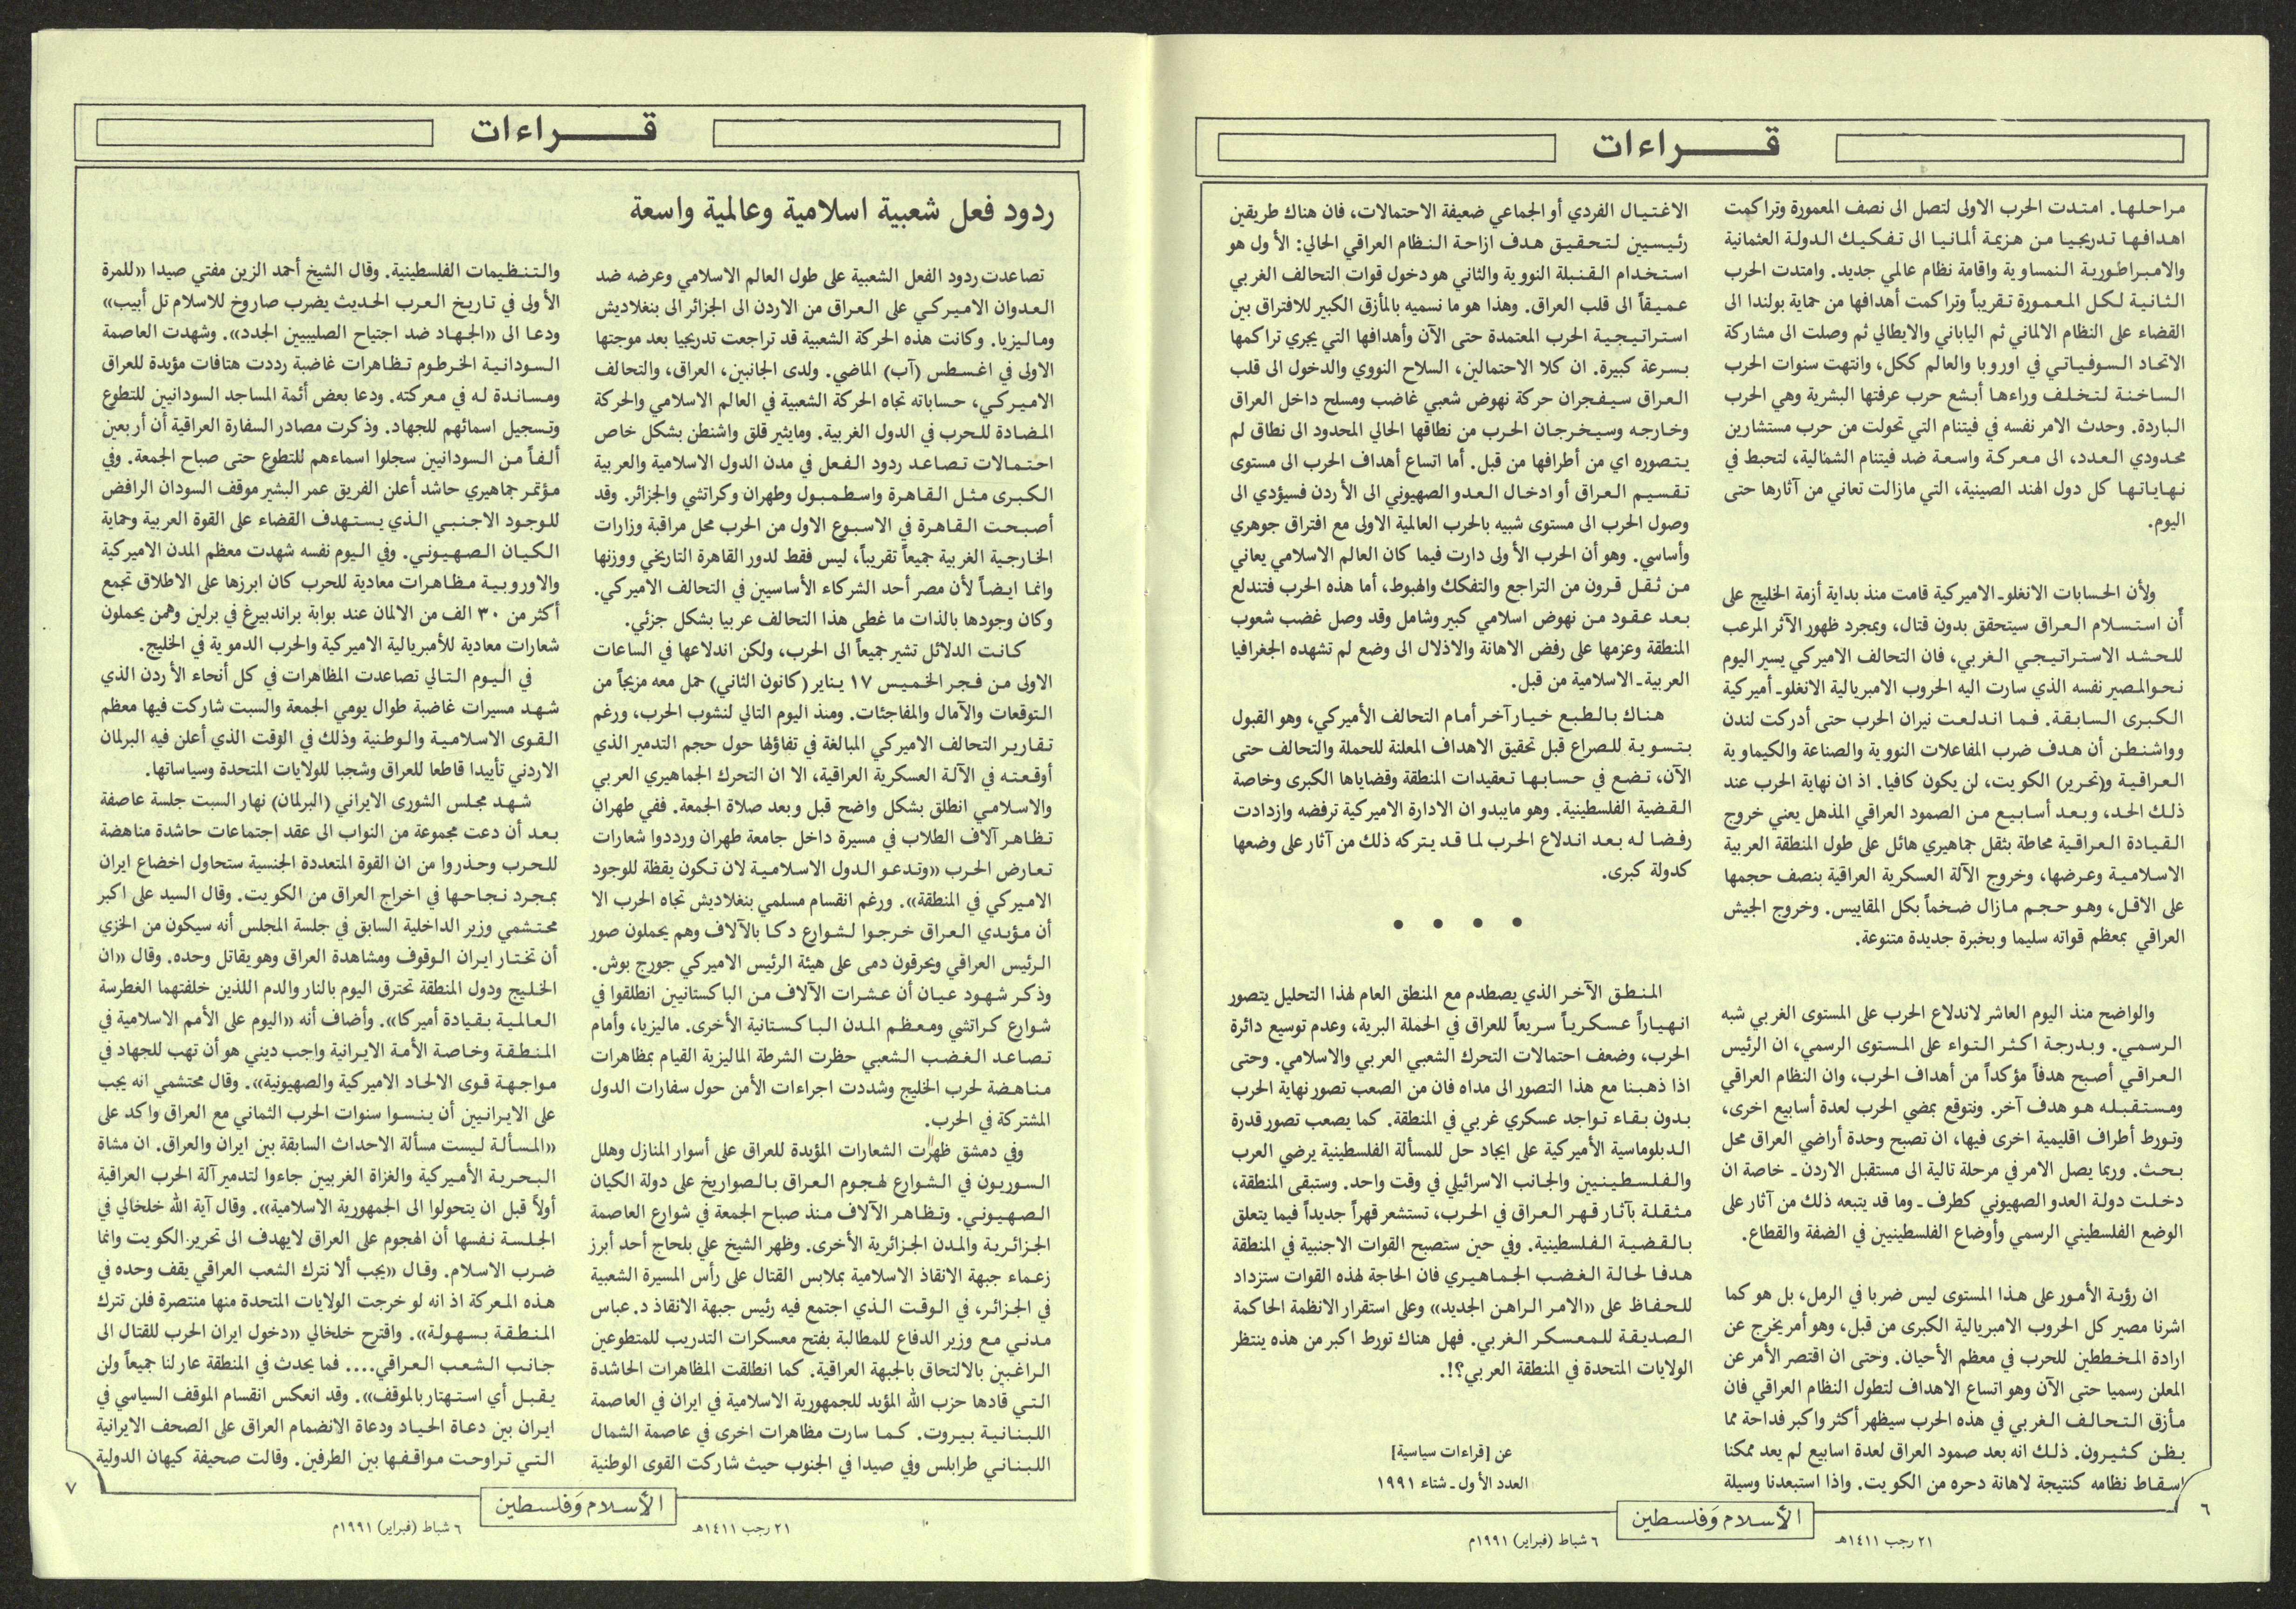 قــــراءات
مراحلها. امتدت الحرب الاولى لتصل الى نصف المعمورة وتراكمت
اهدافها تدريجيا من هزيمة ألمانيا الى تفكيك الدولة العثمانية
والامبراطورية النمساوية واقامة نظام عالمي جديد. وامتدت الحرب
الثانية لكل المعمورة تقريباً وتراكمت أهدافها من حماية بولندا الى
القضاء على النظام الالماني ثم الياباني والايطالي ثم وصلت الى مشاركة
الاتحاد السوفياتي في اوروبا والعالم ككل، وانتهت سنوات الحرب
الساخنة لتخلف وراءها أبشع حرب عرفتها البشرية وهي الحرب
الباردة. وحدث الامر نفسه في فيتنام التي تحولت من حرب مستشارين
محدودي العدد، الى معركة واسعة ضد فيتنام الشمالية، لتحبط في
نهاياتها كل دول الهند الصينية، التي مازالت تعاني من آثارها حتى
اليوم.
ولأن الحسابات الانغلو-الاميركية قامت منذ بداية أزمة الخليج على
أن استسلام العراق سيتحقق بدون قتال، وبمجرد ظهور الآثر المرعب
للحشد الاستراتيجي الغربي، فان التحالف الاميركي يسير اليوم
نحو المصير نفسه الذي سارت اليه الحروب الامبريالية الانغلو-أميركية
الكبرى السابقة. فما اندلعت نيران الحرب حتى أدركت لندن
وواشنطن أن هدف ضرب المفاعلات النووية والصناعة والكيماوية
العراقية و(تحرير) الكويت، لن يكون كافيا. اذ ان نهاية الحرب عند
ذلك الحد، وبعد أسابيع من الصمود العراقي المذهل يعني خروج
القيادة العراقية محاطة بثقل جماهيري هائل على طول المنطقة العربية
الاسلامية وعرضها، وخروج الآلة العسكرية العراقية بنصف حجمها
على الاقل، وهو حجم مازال ضخماً بكل المقاييس. وخروج الجيش
العراقي بمعظم قواته سليما وبخبرة جديدة متنوعة.
والواضح منذ اليوم العاشر لاندلاع الحرب على المستوى الغربي شبه
الرسمي. وبدرجة اكثر التواء على المستوى الرسمي، ان الرئيس
العراقي أصبح هدفاً مؤكداً من أهداف الحرب، وان النظام العراقي
ومستقبله هو هدف آخر. ونتوقع بمضي الحرب لعدة أسابيع اخرى،
وتورط أطراف اقليمية اخرى فيها، ان تصبح وحدة أراضي العراق محل
بحث. وربما يصل الامر في مرحلة تالية الى مستقبل الاردن - خاصة ان
دخلت دولة العدو الصهيوني كطرف - وما قد يتبعه ذلك من آثار على
الوضع الفلسطيني الرسمي وأوضاع الفلسطينيين في الضفة والقطاع.
ان رؤية الأمور على هذا المستوى ليس ضربا في الرمل، بل هو كما
اشرنا مصير كل الحروب الامبريالية الكبرى من قبل، وهو أمر يخرج عن
ارادة المخططين للحرب في معظم الأحيان. وحتى ان اقتصر الأمر عن
المعلن رسميا حتى الآن وهو اتساع الاهداف لتطول النظام العراقي فان
مأزق التحالف الغربي في هذه الحرب سيظهر أكثر واكبر فداحة مما
يظن كثيرون. ذلك انه بعد صمود العراق لعدة اسابيع لم يعد ممكنا
اسقاط نظامه كنتيجة لاهانة دحره من الكويت. واذا استبعدنا وسيلة
الاغتيال الفردي أو الجماعي ضعيفة الاحتمالات، فان هناك طريقين
رئيسيين لتحقيق هدف ازاحة النظام العراقي الحالي: الأول هو
استخدام القنبلة النووية والثاني هو دخول قوات التحالف الغربي
عميقاً الى قلب العراق. وهذا هو ما نسميه بالمأزق الكبير للافتراق بين
استراتيجية الحرب المعتمدة حتى الآن وأهدافها التي يجري تراكمها
بسرعة كبيرة. ان كلا الاحتمالين، السلاح النووي والدخول الى قلب
العراق سيفجران حركة نهوض شعبي غاضب ومسلح داخل العراق
وخارجه وسيخرجان الحرب من نطاقها الحالي المحدود الى نطاق لم
يتصوره اي من أطرافها من قبل. أما اتساع أهداف الحرب الى مستوى
تقسيم العراق أو ادخال العدو الصهيوني الى الأردن فسيؤدي الى
وصول الحرب الى مستوى شبيه بالحرب العالمية الاولى مع افتراق جوهري
وأساسي. وهو أن الحرب الأولى دارت فيما كان العالم الاسلامي يعاني
من ثقل قرون من التراجع والتفكك والهبوط، أما هذه الحرب فتندلع
بعد عقود من نهوض اسلامي كبير وشامل وقد وصل غضب شعوب
المنطقة وعزمها على رفض الاهانة والاذلال الى وضع لم تشهده الجغرافيا
العربية-الاسلامية من قبل.
هناك بالطبع خيار آخر أمام التحالف الأميركي، وهو القبول
بتسوية للصراع قبل تحقيق الاهداف المعلنة للحملة والتحالف حتى
الآن، تضع في حسابها تعقيدات المنطقة وقضاياها الكبرى وخاصة
القضية الفلسطينية. وهو مايبدو ان الادارة الاميركية ترفضه وازدادت
رفضا له بعد اندلاع الحرب لما قد يتركه ذلك من آثار على وضعها
كدولة كبرى.
• • • •
المنطق الآخر الذي يصطدم مع المنطق العام لهذا التحليل يتصور
انهياراً عسكرياً سريعاً للعراق في الحملة البرية، وعدم توسيع دائرة
الحرب، وضعف احتمالات التحرك الشعبي العربي والاسلامي. وحتى
اذا ذهبنا مع هذا التصور الى مداه فان من الصعب تصور نهاية الحرب
بدون بقاء تواجد عسكري غربي في المنطقة. كما يصعب تصور قدرة
الدبلوماسية الأميركية على ايجاد حل للمسألة الفلسطينية يرضي العرب
والفلسطينيين والجانب الاسرائيلي في وقت واحد. وستبقى المنطقة،
مثقلة بآثار قهر العراق في الحرب، تستشعر قهراً جديداً فيما يتعلق
بالقضية الفلسطينية. وفي حين ستصبح القوات الاجنبية في المنطقة
هدفا لحالة الغضب الجماهيري فان الحاجة لهذه القوات ستزداد
للحفاظ على «الامر الراهن الجديد» وعلى استقرار الانظمة الحاكمة
الصديقة للمعسكر الغربي. فهل هناك تورط اكبر من هذه ينتظر
الولايات المتحدة في المنطقة العربي؟!.
عن [قراءات سياسية]
العدد الأول - شتاء ١٩٩١
٦
الأسلام وَفلسطين
٢١ رجب ١٤١١هـ
٦ شباط (فبراير) ١٩٩١م
قــــراءات
ردود فعل شعبية اسلامية وعالمية واسعة
تصاعدت ردود الفعل الشعبية على طول العالم الاسلامي وعرضه ضد
العدوان الاميركي على العراق من الاردن الى الجزائر الى بنغلاديش
وماليزيا. وكانت هذه الحركة الشعبية قد تراجعت تدريجيا بعد موجتها
الاولى في اغسطس (آب) الماضي. ولدى الجانبين، العراق، والتحالف
الاميركي، حساباته تجاه الحركة الشعبية في العالم الاسلامي والحركة
المضادة للحرب في الدول الغربية. ومايثير قلق واشنطن بشكل خاص
احتمالات تصاعد ردود الفعل في مدن الدول الاسلامية والعربية
الكبرى مثل القاهرة واسطمبول وطهران وكراتشي والجزائر. وقد
أصبحت القاهرة في الاسبوع الاول من الحرب محل مراقبة وزارات
الخارجية الغربية جميعاً تقريباً، ليس فقط لدور القاهرة التاريخي ووزنها
وانما ايضاً لأن مصر أحد الشركاء الأساسيين في التحالف الاميركي.
وكان وجودها بالذات ما غطى هذا التحالف عربيا بشكل جزئي.
كانت الدلائل تشير جميعاً الى الحرب، ولكن اندلاعها في الساعات
الاولى من فجر الخميس ١٧ يناير (كانون الثاني) حمل معه مزيجاً من
التوقعات والآمال والمفاجئات. ومنذ اليوم التالي لنشوب الحرب، ورغم
تقارير التحالف الاميركي المبالغة في تفاؤلها حول حجم التدمير الذي
أوقعته في الآلة العسكرية العراقية، الا ان التحرك الجماهيري العربي
والاسلامي انطلق بشكل واضح قبل وبعد صلاة الجمعة. ففي طهران
تظاهر آلاف الطلاب في مسيرة داخل جامعة طهران ورددوا شعارات
تعارض الحرب «وتدعو الدول الاسلامية لان تكون يقظة للوجود
الاميركي في المنطقة». ورغم انقسام مسلمي بنغلاديش تجاه الحرب الا
أن مؤيدي العراق خرجوا لشوارع دكا بالآلاف وهم يحملون صور
الرئيس العراقي ويحرقون دمى على هيئة الرئيس الاميركي جورج بوش.
وذكر شهود عيان أن عشرات الآلاف من الباكستانيين انطلقوا في
شوارع كراتشي ومعظم المدن الباكستانية الأخرى. ماليزيا، وأمام
تصاعد الغضب الشعبي حظرت الشرطة الماليزية القيام بمظاهرات
مناهضة لحرب الخليج وشددت اجراءات الأمن حول سفارات الدول
المشتركة في الحرب.
وفي دمشق ظهرت الشعارات المؤيدة للعراق على أسوار المنازل وهلل
السوريون في الشوارع لهجوم العراق بالصواريخ على دولة الكيان
الصهيوني. وتظاهر الآلاف منذ صباح الجمعة في شوارع العاصمة
الجزائرية والمدن الجزائرية الأخرى. وظهر الشيخ علي بلحاج أحد أبرز
زعماء جبهة الانقاذ الاسلامية بملابس القتال على رأس المسيرة الشعبية
في الجزائر، في الوقت الذي اجتمع فيه رئيس جبهة الانقاذ د. عباس
مدني مع وزير الدفاع للمطالبة بفتح معسكرات التدريب للمتطوعين
الراغبين بالالتحاق بالجبهة العراقية. كما انطلقت المظاهرات الحاشدة
التي قادها حزب الله المؤيد للجمهورية الاسلامية في ايران في العاصمة
اللبنانية بيروت. كما سارت مظاهرات اخرى في عاصمة الشمال
اللبناني طرابلس وفي صيدا في الجنوب حيث شاركت القوى الوطنية
والتنظيمات الفلسطينية. وقال الشيخ أحمد الزين مفتي صيدا «للمرة
الأولى في تاريخ العرب الحديث يضرب صاروخ للاسلام تل أبيب»
ودعا الى «الجهاد ضد اجتياح الصليبيين الجدد». وشهدت العاصمة
السودانية الخرطوم تظاهرات غاضبة رددت هتافات مؤيدة للعراق
ومساندة له في معركته. ودعا بعض أئمة المساجد السودانيين للتطوع
وتسجيل اسمائهم للجهاد. وذكرت مصادر السفارة العراقية أن أربعين
ألفاً من السودانيين سجلوا اسماءهم للتطوع حتى صباح الجمعة. وفي
مؤتمر جماهيري حاشد أعلن الفريق عمر البشير موقف السودان الرافض
للوجود الاجنبي الذي يستهدف القضاء على القوة العربية وحماية
الكيان الصهيوني. وفي اليوم نفسه شهدت معظم المدن الاميركية
والاوروبية مظاهرات معادية للحرب كان ابرزها على الاطلاق تجمع
أكثر من ٣٠ الف من الالمان عند بوابة براندبيرغ في برلين وهمن يحملون
شعارات معادية للأمبريالية الاميركية والحرب الدموية في الخليج.
في اليوم التالي تصاعدت المظاهرات في كل أنحاء الأردن الذي
شهد مسيرات غاضبة طوال يومي الجمعة والسبت شاركت فيها معظم
القوى الاسلامية والوطنية وذلك في الوقت الذي أعلن فيه البرلمان
الاردني تأييدا قاطعا للعراق وشجبا للولايات المتحدة وسياساتها.
شهد مجلس الشورى الايراني (البرلمان) نهار السبت جلسة عاصفة
بعد أن دعت مجموعة من النواب الى عقد إجتماعات حاشدة مناهضة
للحرب وحذروا من ان القوة المتعددة الجنسية ستحاول اخضاع ايران
بمجرد نجاحها في اخراج العراق من الكويت. وقال السيد على اكبر
محتشمي وزير الداخلية السابق في جلسة المجلس أنه سيكون من الخزي
أن تختار ايران الوقوف ومشاهدة العراق وهو يقاتل وحده. وقال «ان
الخليج ودول المنطقة تحترق اليوم بالنار والدم اللذين خلفتهما الغطرسة
العالمية بقيادة أميركا». وأضاف أنه «اليوم على الأمم الاسلامية في
المنطقة وخاصة الأمة الايرانية واجب ديني هو أن تهب للجهاد في
مواجهة قوى الالحاد الاميركية والصهيونية». وقال محتشمي انه يجب
على الايرانيين أن ينسوا سنوات الحرب الثماني مع العراق واكد على
«المسألة ليست مسألة الاحداث السابقة بين ايران والعراق. ان مشاة
البحرية الأميركية والغزاة الغربيين جاءوا لتدمير آلة الحرب العراقية
أولاً قبل ان يتحولوا الى الجمهورية الاسلامية». وقال آية الله خلخالي في
الجلسة نفسها أن الهجوم على العراق لايهدف الى تحرير الكويت وانما
ضرب الاسلام. وقال «يجب ألا نترك الشعب العراقي يقف وحده في
هذه المعركة اذ انه لو خرجت الولايات المتحدة منها منتصرة فلن تترك
المنطقة بسهولة». واقترح خلخالي «دخول ايران الحرب للقتال الى
جانب الشعب العراقي.... فما يحدث في المنطقة عار لنا جميعاً ولن
يقبل أي استهتار بالموقف». وقد انعكس انقسام الموقف السياسي في
ايران بين دعاة الحياد ودعاة الانضمام العراق على الصحف الايرانية
التي تراوحت مواقفها بين الطرفين. وقالت صحيفة كيهان الدولية
٧
الأسلام وَفلسطين
٢١ رجب ١٤١١هـ
٦ شباط (فبراير) ١٩٩١م